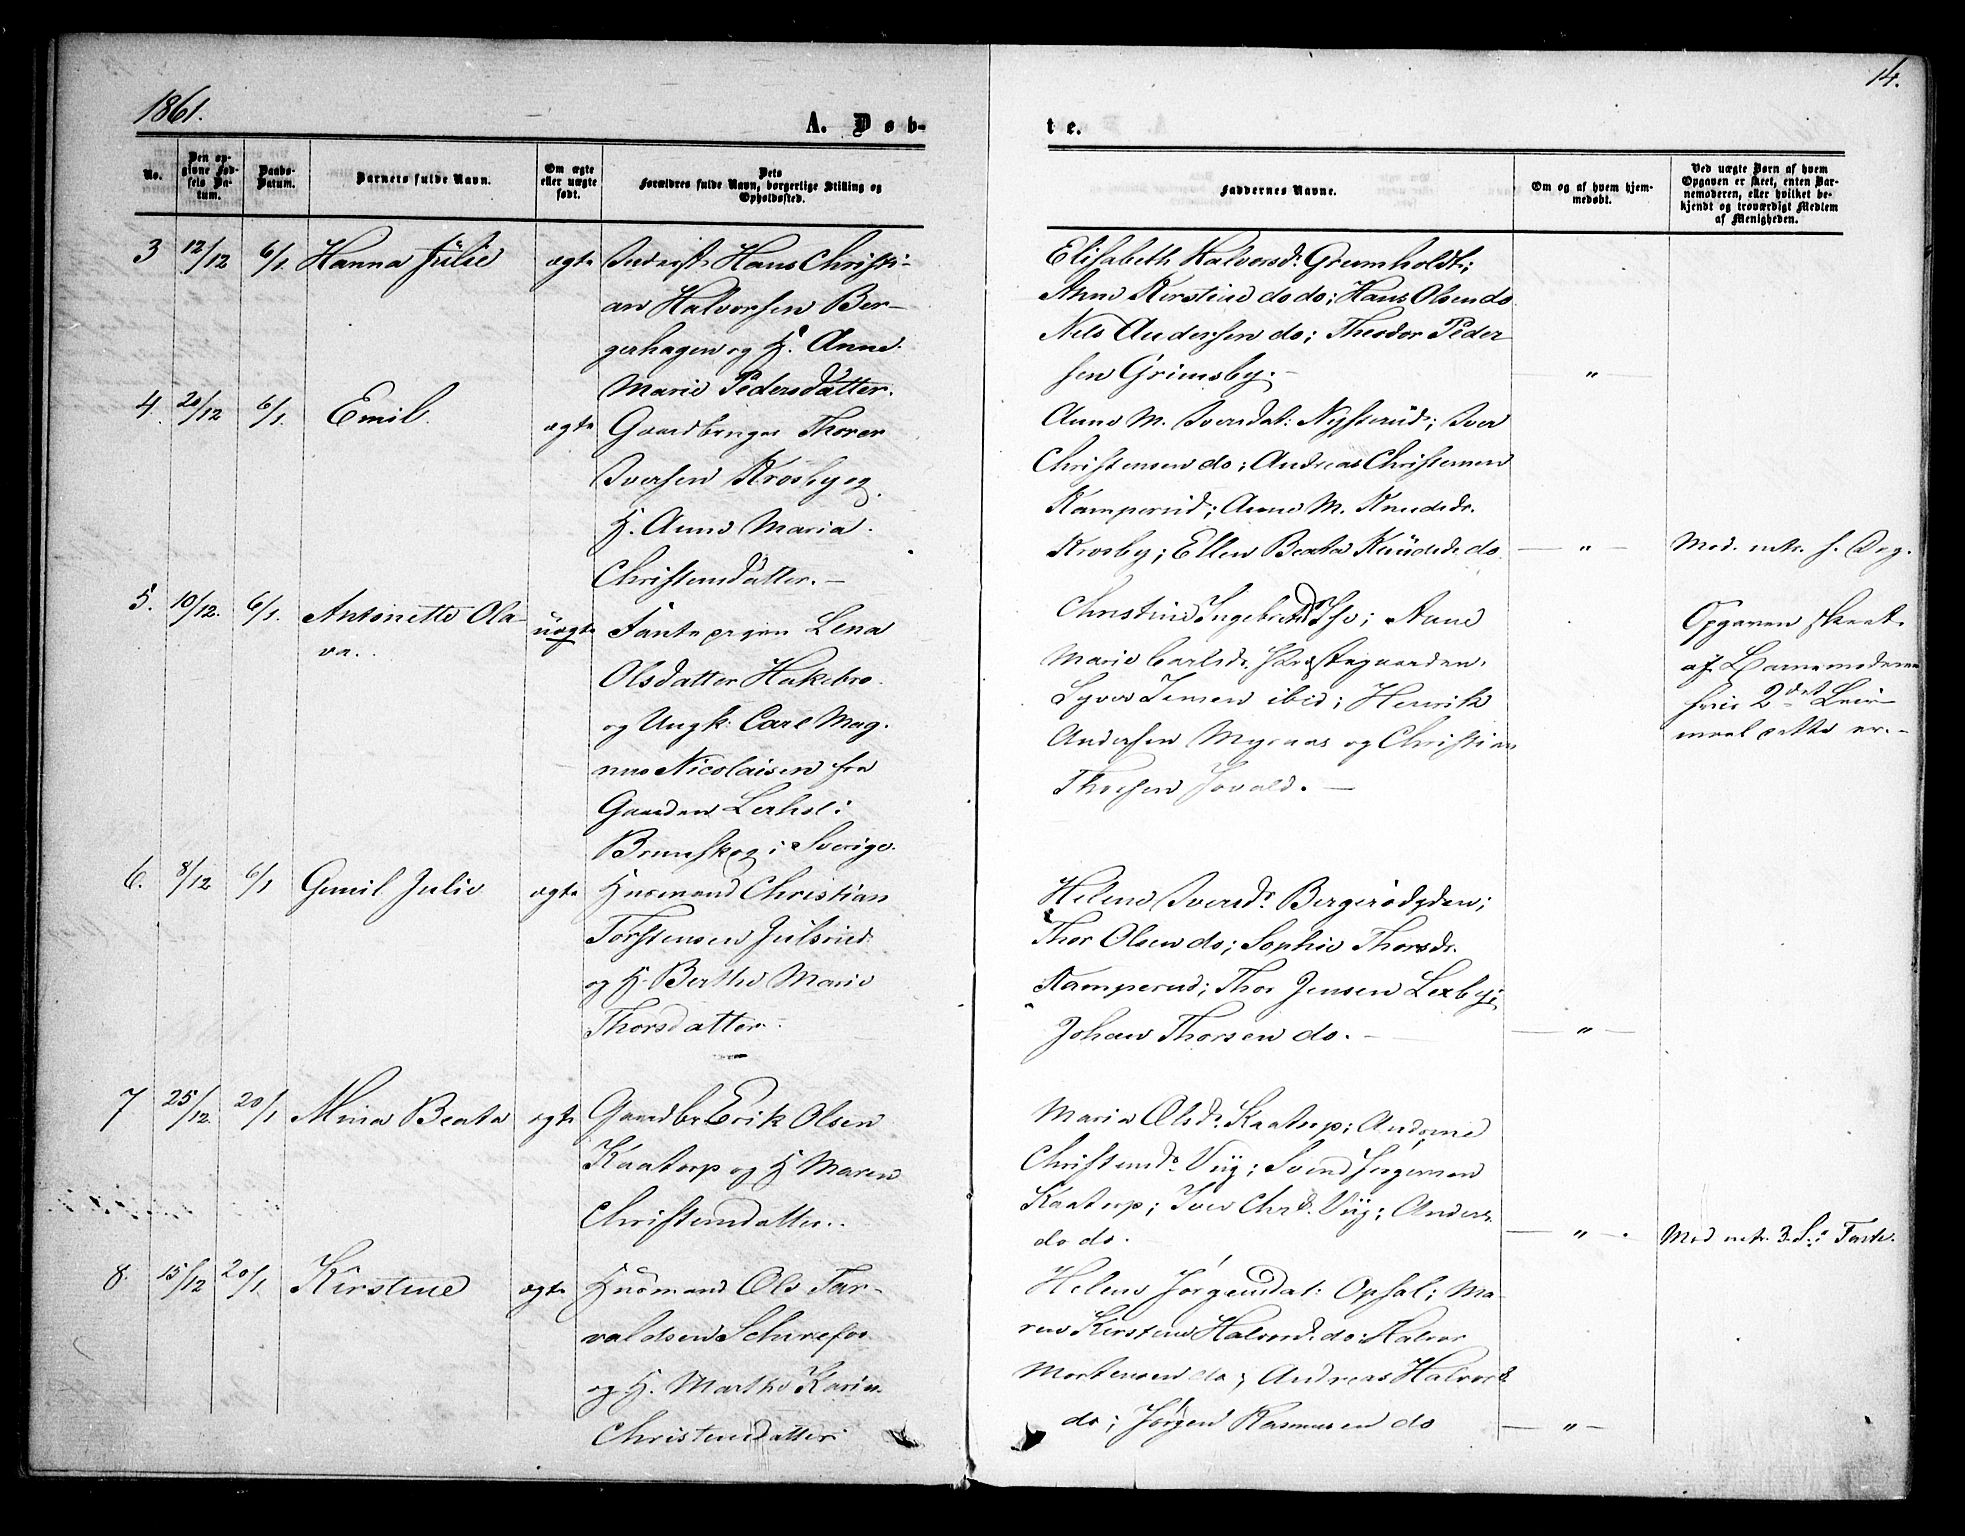 1861.
14.
A. Døb-
te.
No.
Den opgivne Fødsels Datum.
Daabs-Datum.
Barnets fulde Navn.
Om ægte eller uægte født.
Dets Forældres fulde Navn, borgerlige Stilling og Opholdssted.
Faddernes Navne.
Om og af hvem hjemmedøbt.
Ved uægte Børn af hvem Opgaven er skeet, enten Barnemoderen, eller hvilket bekjendt og troværdigt Medlem af Menigheden.
3 12/12 6/1 Hanna Julie ægte Inderst Hans Christi-
an Halvorsen Ber-
gerhagen og H. Anne
Marie Pedersdatter.
Elisabeth Halvorsd. Grumholdt;
Anne Kirstine do do; Hans Olsen do
Nils Andersen do; Theodor Peder-
sen Grimsby. — "
4. 20/12 6/1. Emil. ægte Gaardbruger Thorer
Iversen Krosby og
H. Anne Maria
Christensdatter. —
Anne M. Iversdat: Nysterud; Iver
Christensen do; Andreas Christensen
Kamperud; Anne M. Knudsdr.
Krosby; Ellen Beata Knudsd. do — " —
5. 10/12. 6/1. Antonette Ola-
va.
uægte Lena
Olsdatter Hakebro
og Ungk. Carl Mag-
nus Nicolaisen fra
Gaarden
Brunskog i Sverige.
Anne
Marie Carlsd. Præstegaarden
Syver Jensen ibid; Henrik
Andersen Myraas og Christian
Opgaven skeet
af Barnemoderen
6. 8/12 6/1 Gunil Julie ægte Husmand Christian
Torstensen Julsrud
og H. Berthe Marie
Thorsdatter.
Helene Iversdr. Bergerødegden;
Thor Olsen do; Sophie Thorsdr.
Kamperud; Thor Jensen Lexby;
Johan Thorsen do. — "
7 25/12. 20/1 Mina Beata ægte Gaardbr Erik Olsen
Kaatorp og H Maren
Christensdatter.
Maria Olsdr. Kaatorp; Andrine
Christensdr. Viig; Svend Jørgensen
Kaatorp; Iver Chrd. Viig; Anders
do do. — " —
8. 15/12 20/1. Kirstine ægte Husmand Ole Tar-
valdsen
og H. Marthe Karine
Christensdatter
Helene Jørgensdat: Opsal; Ma-
ren Kirstine Halvorsd. do; Halvor
Mortensen do; Andreas Halvors.
do; Jørgen Rasmussen do — " —